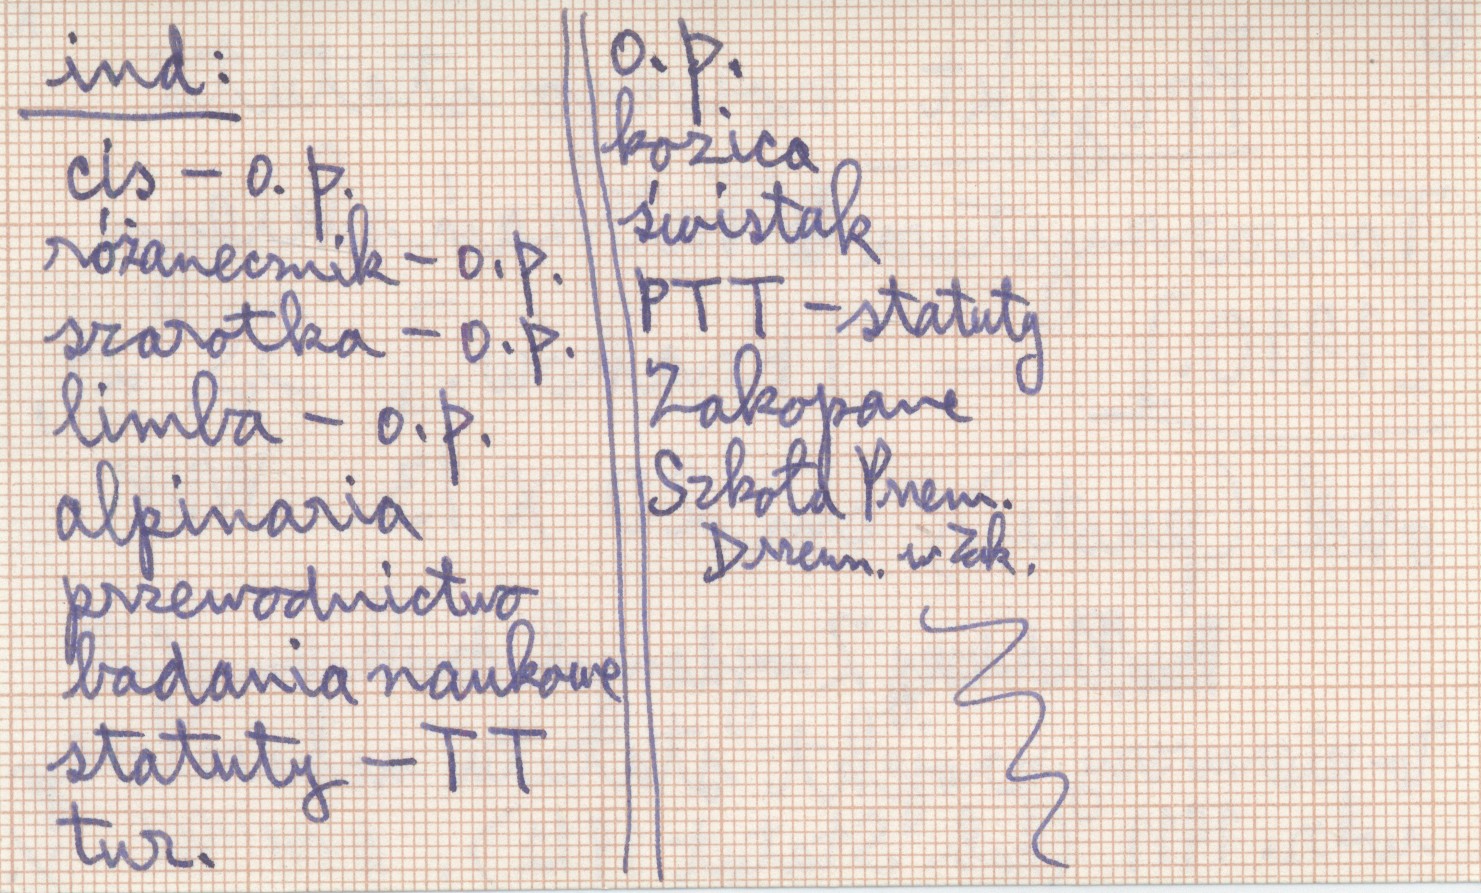 ind:
cis – o.p.
różanecznik – o.p.
szarotka – o.p.
limba – o.p.
alpinaria
przewodnictwo
badania naukowe
statuty – TT
tur.
o.p.
kozica
świstak
PTT – statuty
Zakopane
Szkoła Przem.
Drzewn. w Zak.